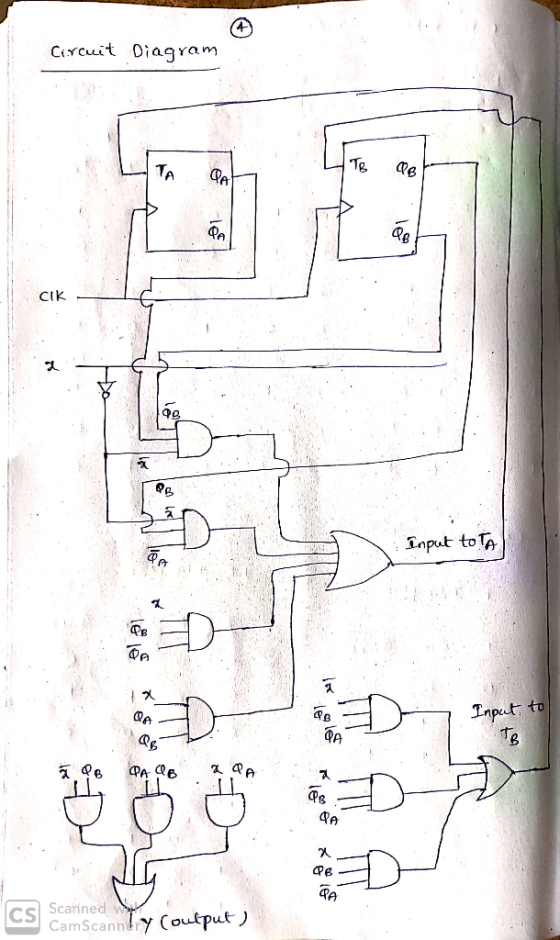 4
Circuit Diagram
TA QA
Q̅A
TB QB
Q̅B
Clk
x
Q̅B
x̅
QB
x̅
Q̅A
Input to TA
x
Q̅B
Q̅A
x
QA
QB
x̅
Q̅B
Q̅A
Input to
TB
x̅ QB QA QB x QA
x
Q̅B
QA
x
QB
Q̅A
y (output)
CS Scanned with
CamScanner